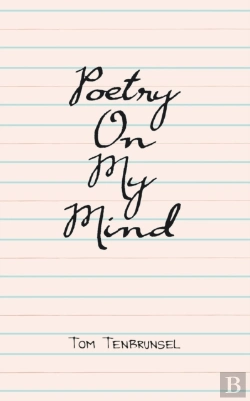 Poetry
On
My
Mind
TOM TENBRUNSEL
B